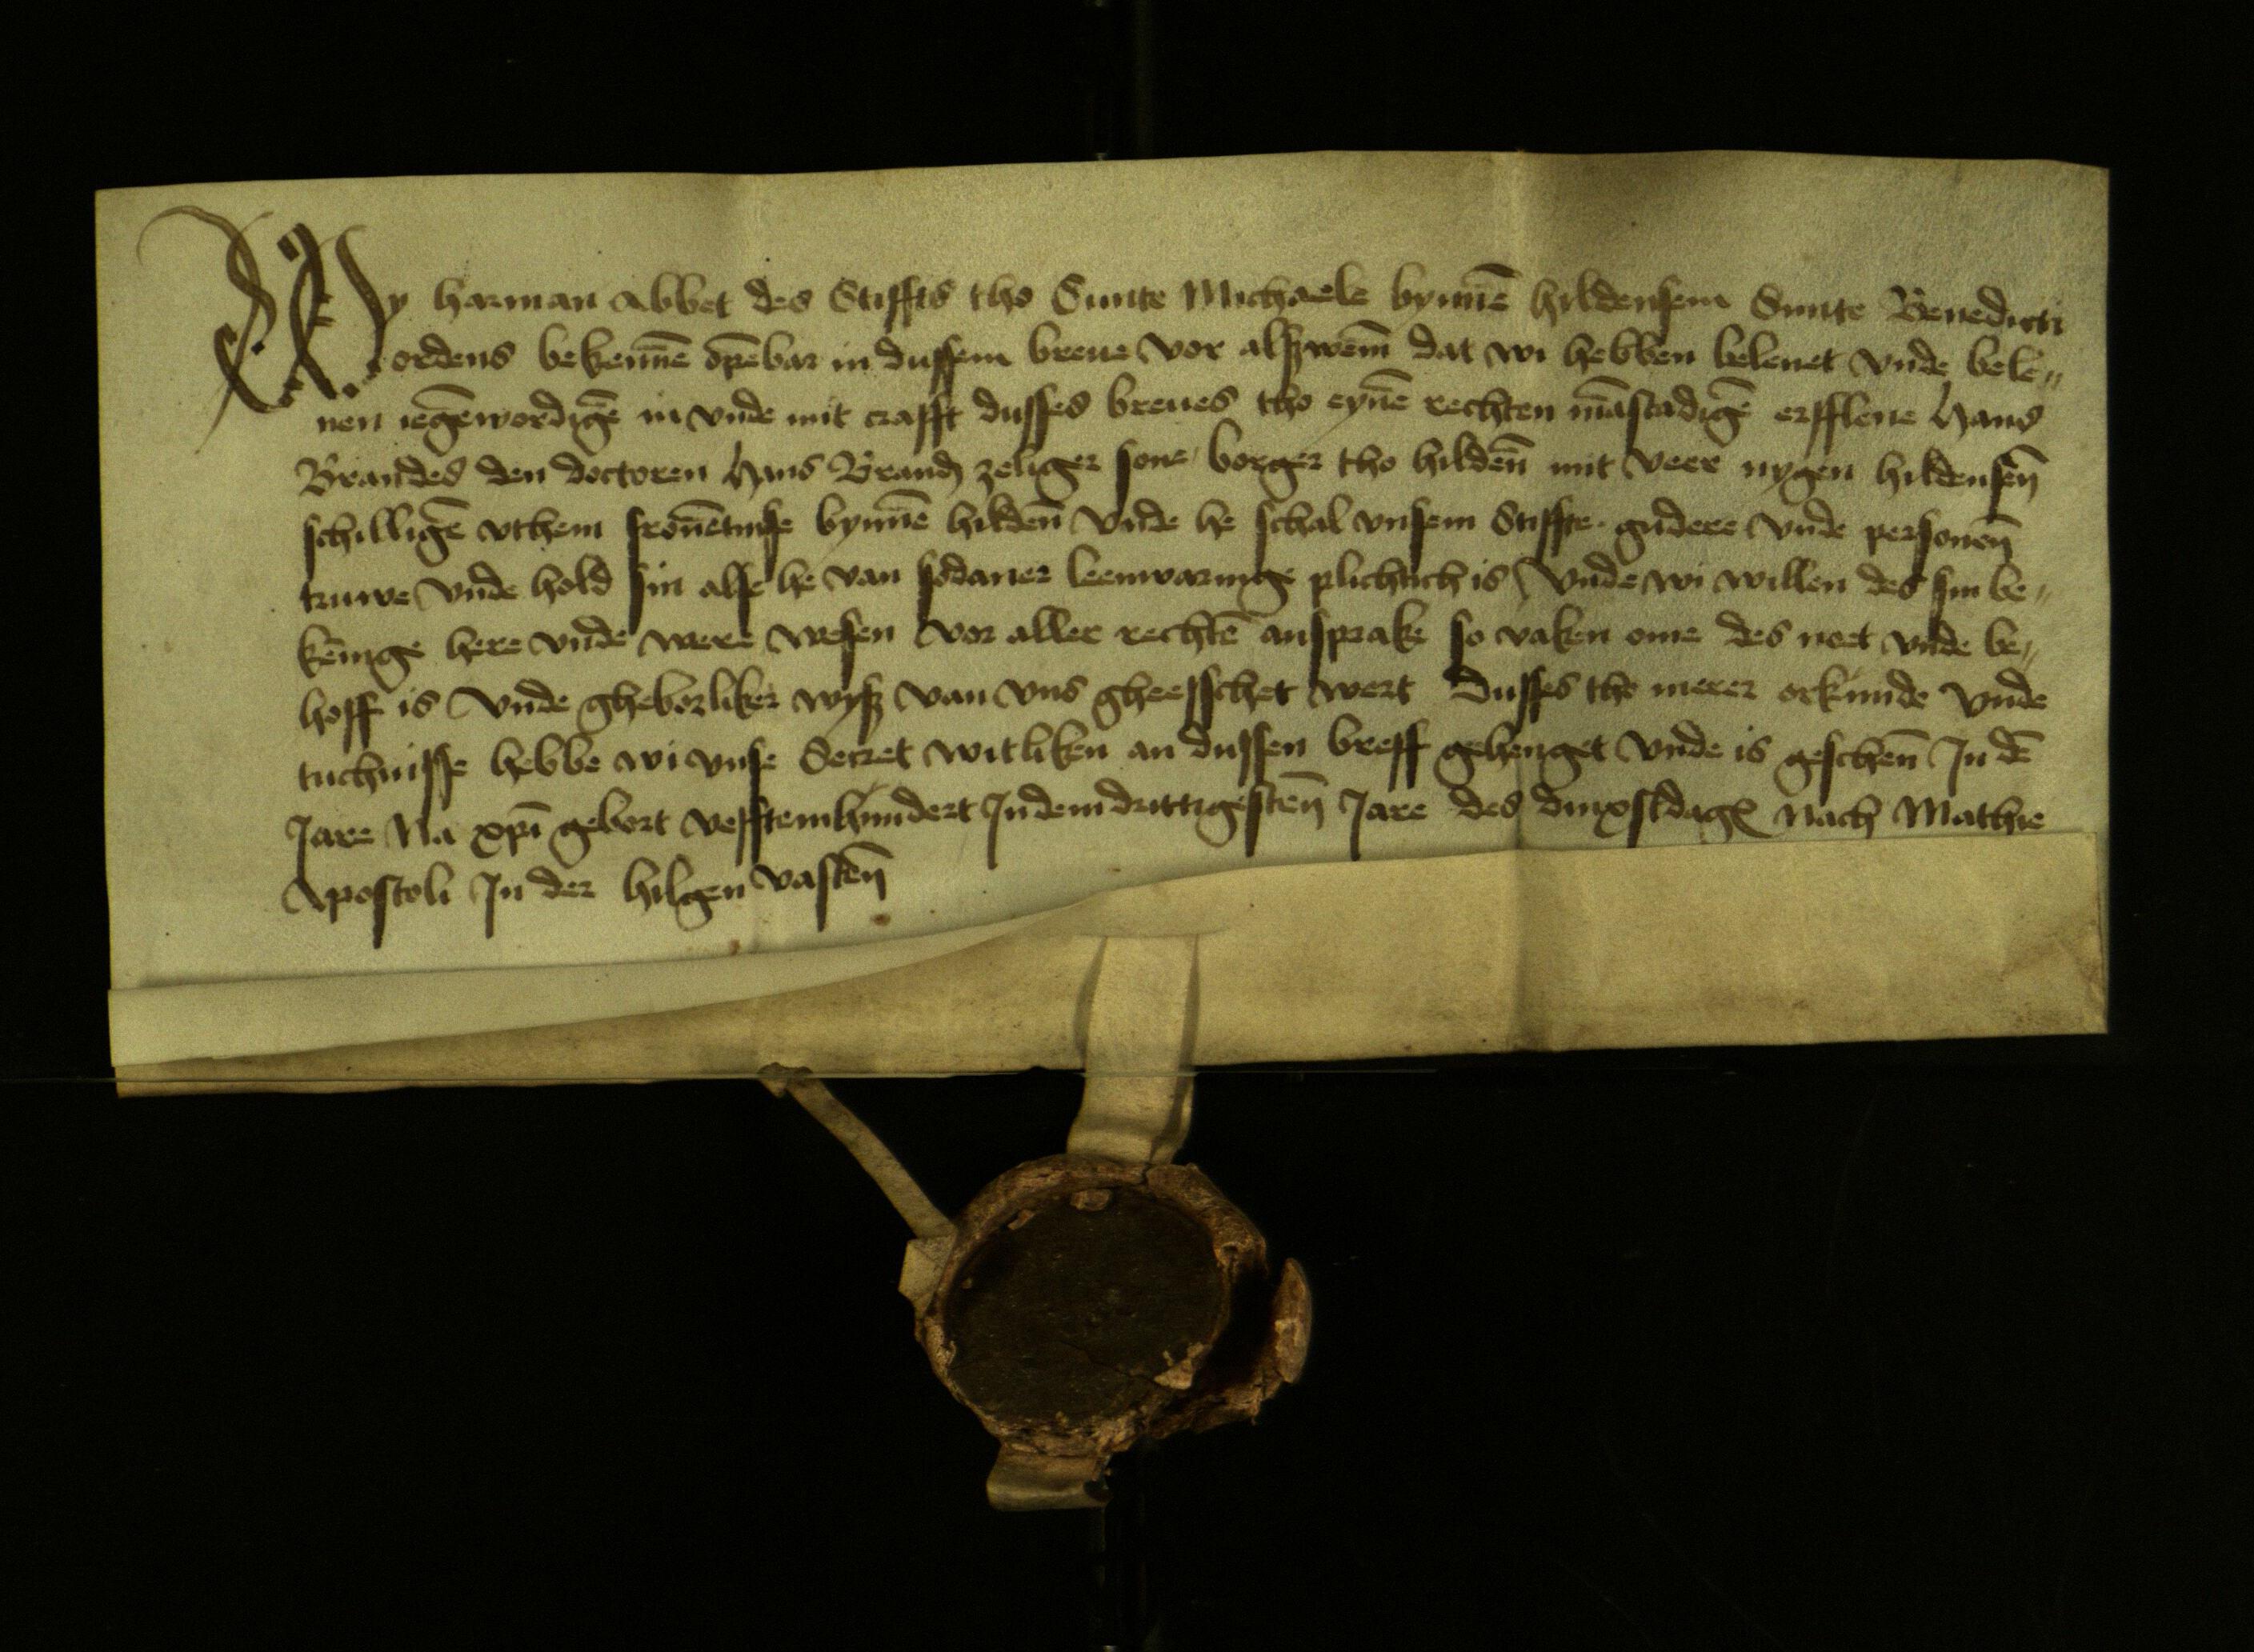 Wy harman abbet des Stiffts tho Sunte Michaele bynnē hildensem Sunte Benedicti
ordens bekennē opēbar in dussem breue vor alszwēm dat wi hebben belenet vnde bele-
nen iegēwordigē in vnde mit crafft dusses breues tho eynē rechten māstadigē erfflene Hans
Brandes den doctoren Hans Brandz zeliger sone borger tho hildēn mit veer nygen hildensēn
schilligē vthem bynnē hildēn vnde he schal vnsem Stiffte gudere vnde personēn
truwe vnde hold sin alse he van sodaner leenwaringe plichtich is Vnde wi willen des sin be-
kēnige here vnde were wesen vor aller rechtē ansprake so vaken ome des noet vnde be-
hoff is Vnde gheborliker wysz van vns gheesschet wert Dusses tho merer orkunde vnde
tuchnisse hebbe wi vnse Secret witliken an dussen breff gehenget vnde is geschēn In dē
Jare Na xpī gebort vefftemhundert Indem druttigestēn Jare des dinxstdages nach Mathie
Apostoli In der hilgen vastēn